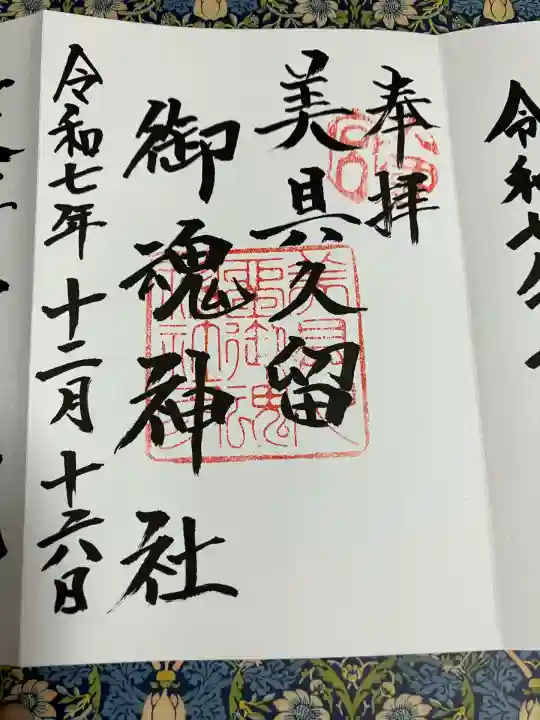 奉拝
美具久留
御魂神社
令和七年十二月十六日
令和七年